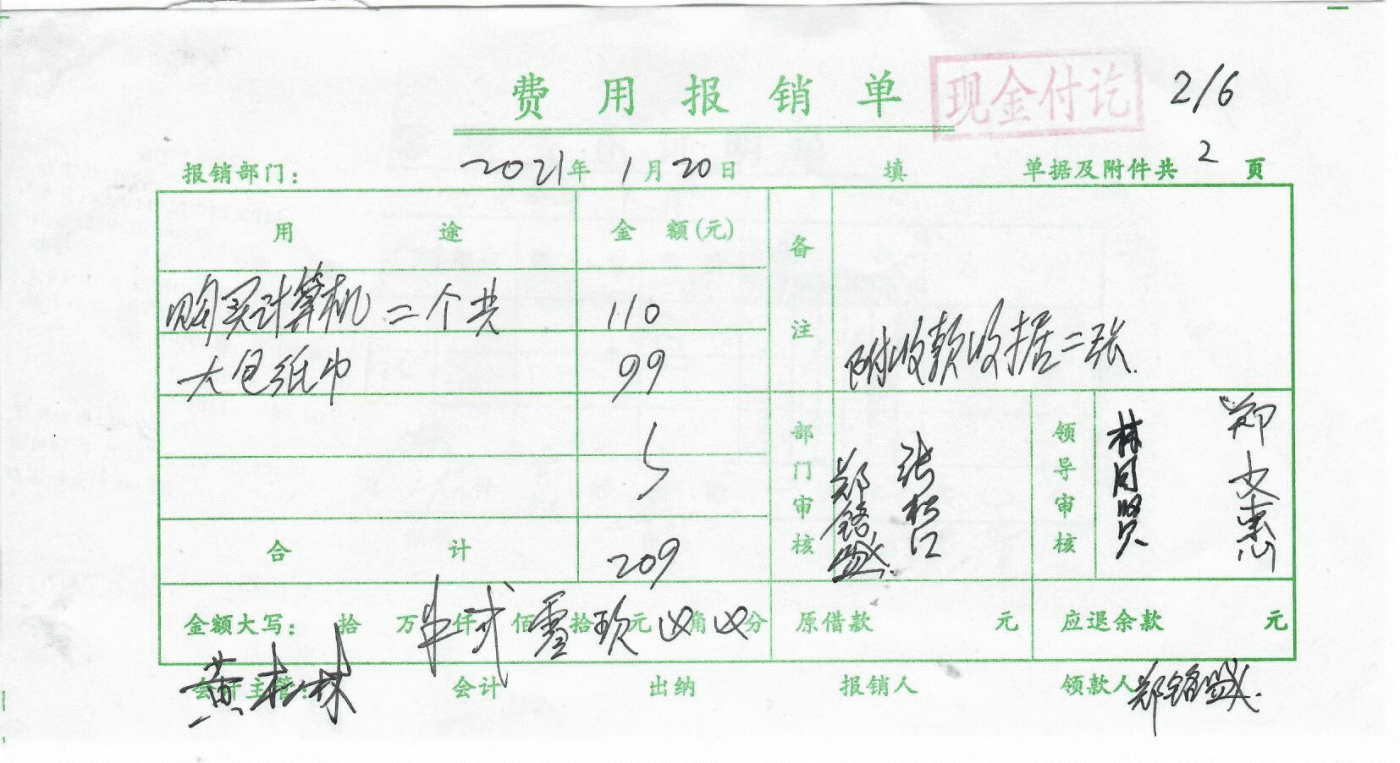 费用报销单 现金付讫 2/6
报销部门： 2021年1月20日 填 单据及附件共 2 页
用途 金额(元) 备注
购买计算机二个共 110
大包纸巾 99 附收款收据二张.
部门审核 郑铭盛 领导审核 林月贤
合计 209
金额大写： 拾 万 仟 贰佰 零拾 玖元 角 分 原借款 元 应退余款 元
会计主管： 黄 林 会计 出纳 报销人 领款人 郑铭盛.